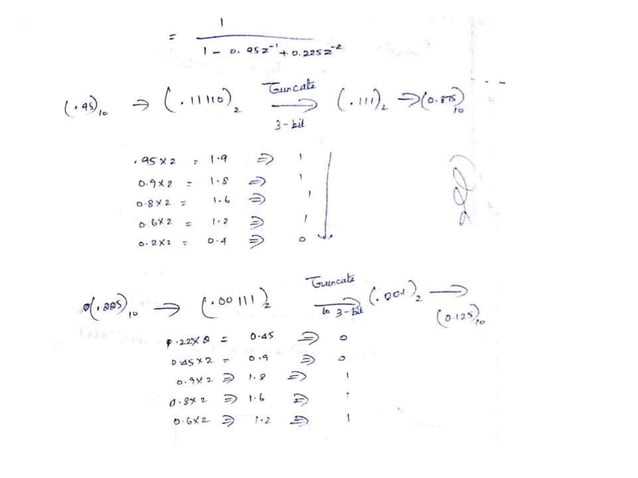 = 1 / (1 - 0.95z⁻¹ + 0.225z⁻²)
(.95)₁₀ → (.11110)₂ Truncate 3-bit → (.111)₂ → (0.875)₁₀
.95x2 = 1.9 ⇒ 1
0.9x2 = 1.8 ⇒ 1
0.8x2 = 1.6 1
0.6x2 = 1.2 ⇒ 1
0.2x2 = 0.4 ⇒ 0
(.225)₁₀ → (.00111)₂ Truncate to 3-bit → (.001)₂ → (0.125)₁₀
0.22x2 = 0.45 ⇒ 0
0.45x2 = 0.9 ⇒ 0
0.9x2 ⇒ 1.8 ⇒ 1
0.8x2 ⇒ 1.6 ⇒ 1
0.6x2 ⇒ 1.2 ⇒ 1